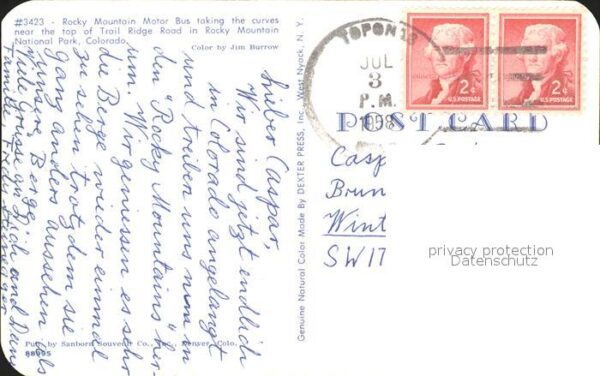 #3423 - Rocky Mountain Motor Bus taking the curves
near the top of Trail Ridge Road in Rocky Mountain
National Park, Colorado.
Color by Jim Burrow
Lieber Caspar,
Wir sind jetzt endlich
in Colorado angelangt
und treiben uns nun in
den "Rocky Mountains" her-
um. Wir geniessen es sehr
die Berge wieder einmal
zu sehen trotzdem sie
ganz anders aussehen als
unsere Berge.
Viele Grüsse an Dich und Deine
Familie
Pub. by Sanborn Souvenir Co., Inc., Denver, Colo.
88995
Genuine Natural Color Made By DEXTER PRESS, Inc., West Nyack, N. Y.
JUL
3
P.M.
1958
2¢
U.S. POSTAGE
2¢
U.S. POSTAGE
POST CARD
Casp
Brun
Wint
SW17
privacy protection
Datenschutz